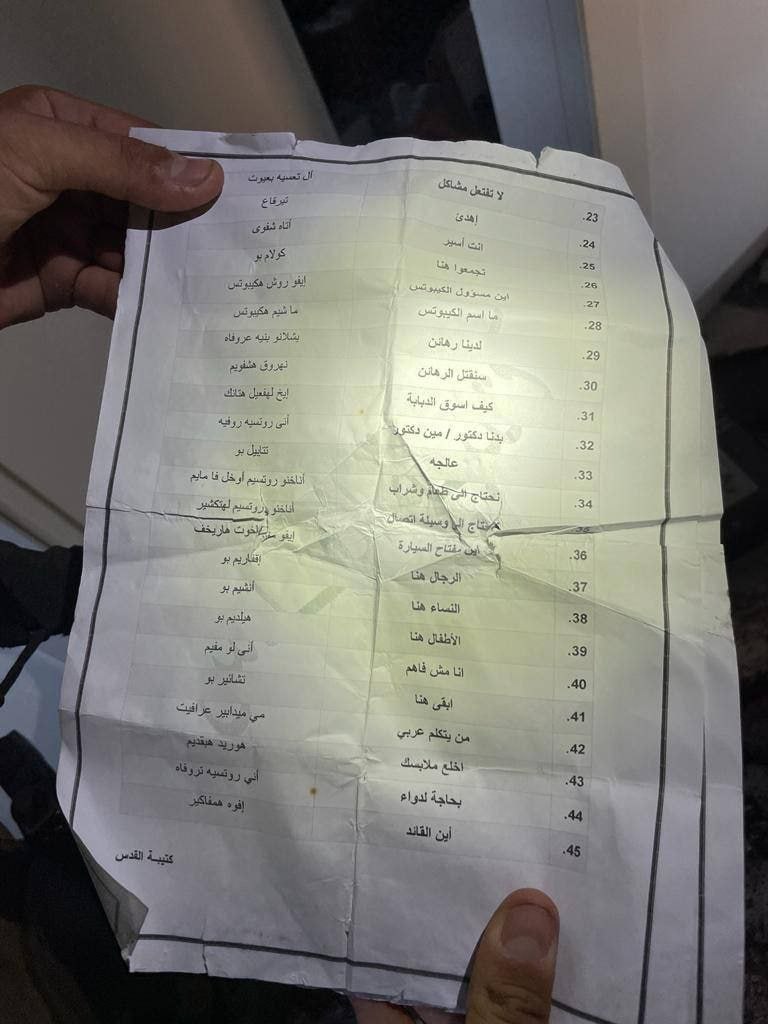 23. لا تفتعل مشاكل آل تعسيه بعيوت
24. إهدئ تيرقاع
25. انت أسير أتاه شفوى
26. تجمعوا هنا كولام بو
27. اين مسؤول الكيبوتس إيفو روش هكيبوتس
28. ما اسم الكيبوتس ما شيم هكيبوتس
29. لدينا رهائن يشلانو بنيه عروفاه
30. سنقتل الرهائن نهروق هشفويم
31. كيف اسوق الدبابة إيخ لهفعيل هتانك
32. بدنا دكتور / مين دكتور أنى روتسيه روفيه
33. عالجه تتابيل بو
34. نحتاج الى طعام وشراب أناخنو روتسيم أوخل فا مايم
35. نحتاج الى وسيلة اتصال أناخنو روتسيم لهتكشير
36. اين مفتاح السيارة إيفو هاريخف
37. الرجال هنا إقفاريم بو
38. النساء هنا أنشيم بو
39. الأطفال هنا هيلديم بو
40. انا مش فاهم أنى لو مفيم
41. ابقى هنا تشائير بو
42. من يتكلم عربي مي ميدابير عرافيت
43. اخلع ملابسك هوريد هبقديم
44. بحاجة لدواء أني روتسيه تروفاه
45. أين القائد إفوه همفاكير
كتيبة القدس